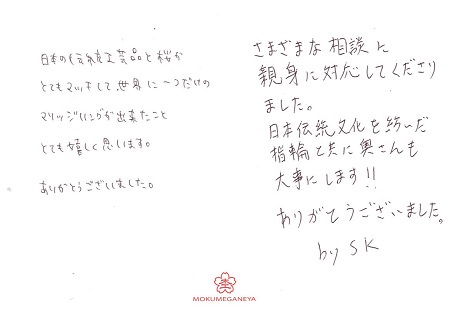 日本の伝統工芸品と桜が
とてもマッチして世界に一つだけの
マリッジリングが出来たこと
とても嬉しく思います。
ありがとうございました。
さまざまな相談に
親身に対応してくださり
ました。
日本伝統文化を紡いだ
指輪と共に奥さんも
大事にします!!
ありがとうございました。
by SK
MOKUMEGANEYA